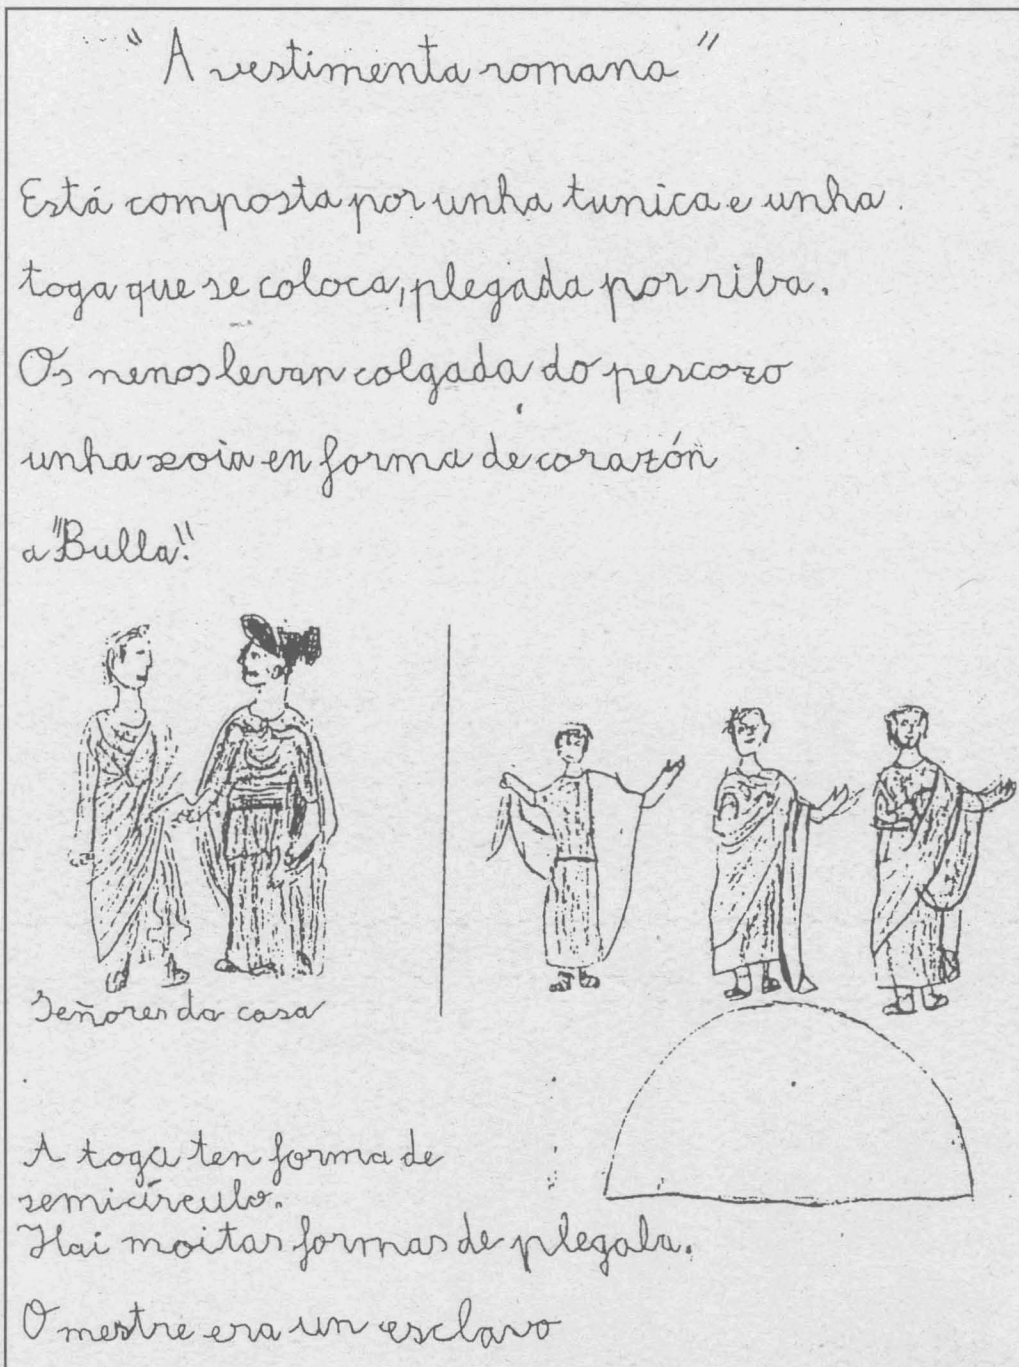 "A vestimenta romana"
Está composta por unha tunica e unha
toga que se coloca, plegada por riba.
Os nenos levan colgada do percozo
unha xoia en forma de corazón
a "Bulla".
Señores da casa
A toga ten forma de
semicírculo.
Hai moitas formas de plegala.
O mestre era un esclavo